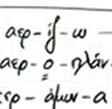 αερ - ίζ - ω
αερ - ο - πλάν
ερ - άμυν - α